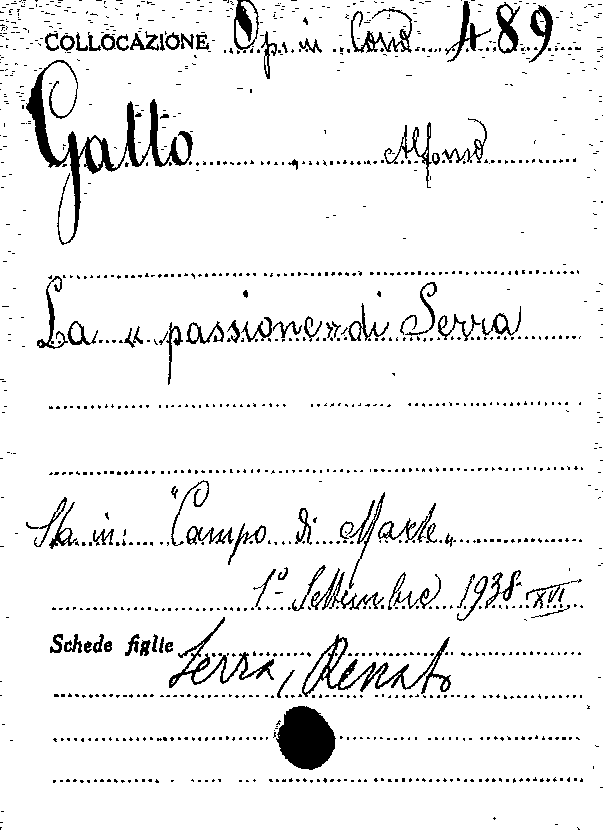 COLLOCAZIONE Op. in Cons 489
Gatto, Alfonso
La « passione » di Serra
Sta in: "Campo di Marte"
1° Settembre 1938 XVI
Schede figlie Serra, Renato